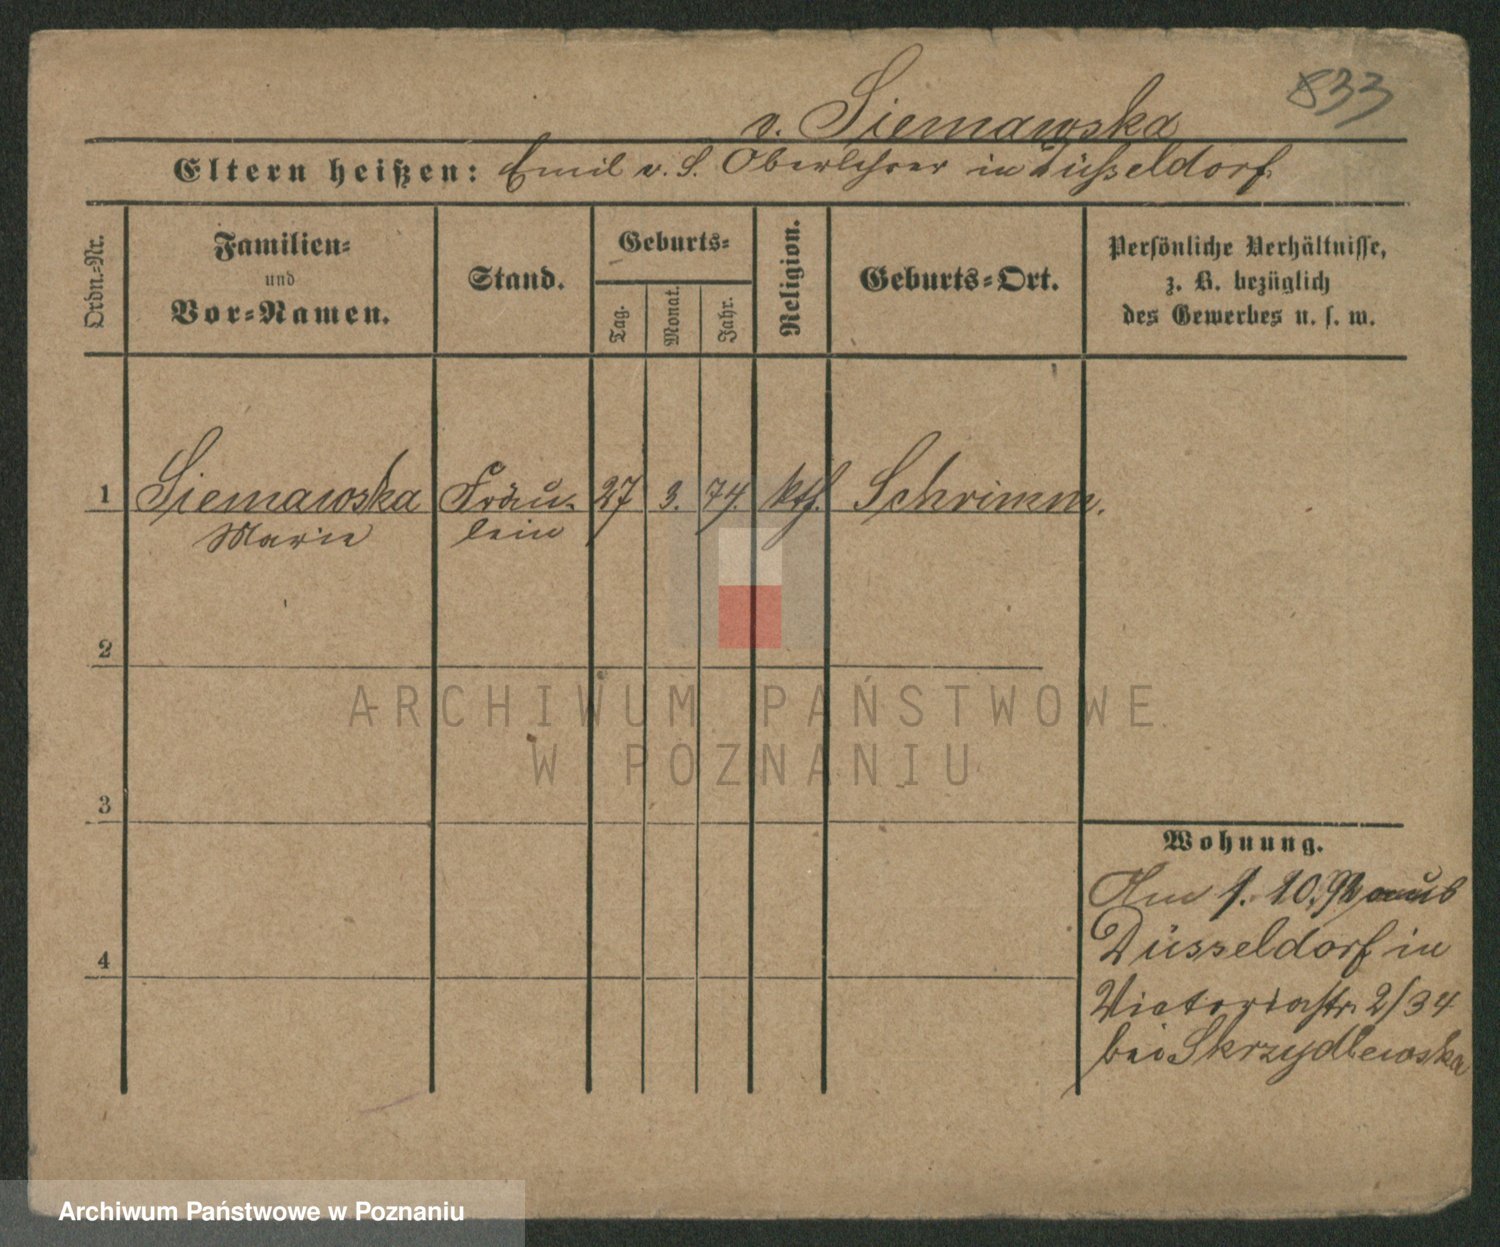 833
v. Siemawska
Eltern heißen: Emil v. S. Oberlehrer in Düsseldorf.
Ordn.-Nr.
Familien-
und
Vor-Namen.
Stand.
Geburts-
Tag.
Monat.
Jahr.
Religion.
Geburts-Ort.
Persönliche Verhältnisse,
z. B. bezüglich
des Gewerbes u. s. w.
1 Siemawska Fräu- 27 3. 74. kth. Schrimm.
Marie lein
2
ARCHIWUM PAŃSTWOWE
W POZNANIU
3
Wohnung.
Am 1. 10. aus
4 Düsseldorf in
Victoriastr. 2/34
bei Skrzydlewska
Archiwum Państwowe w Poznaniu